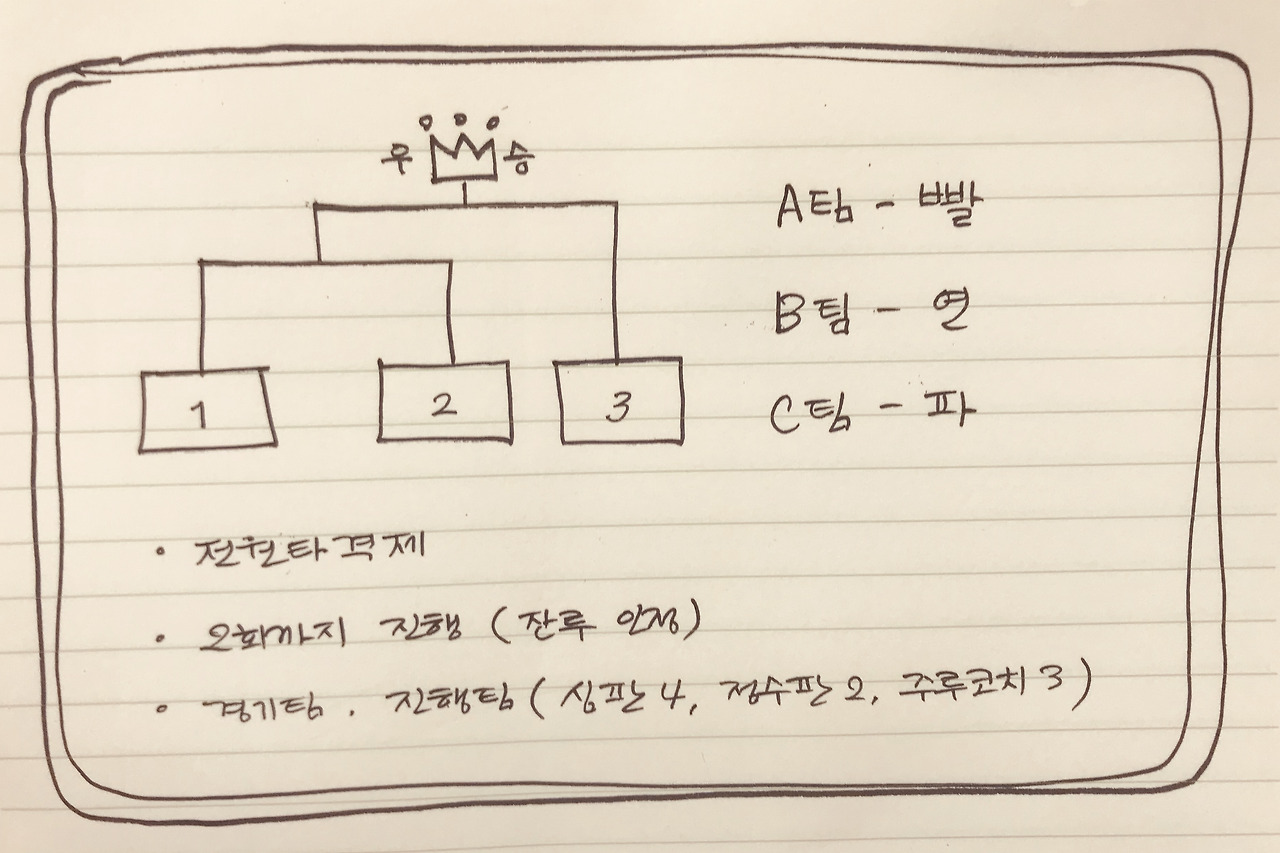 우승
A팀 - 빨
B팀 - 연
C팀 - 파
1
2
3
• 전원타격제
• 2회까지 진행 (잔루 인정)
• 경기팀. 진행팀 (심판 4, 점수판 2, 주루코치 3)